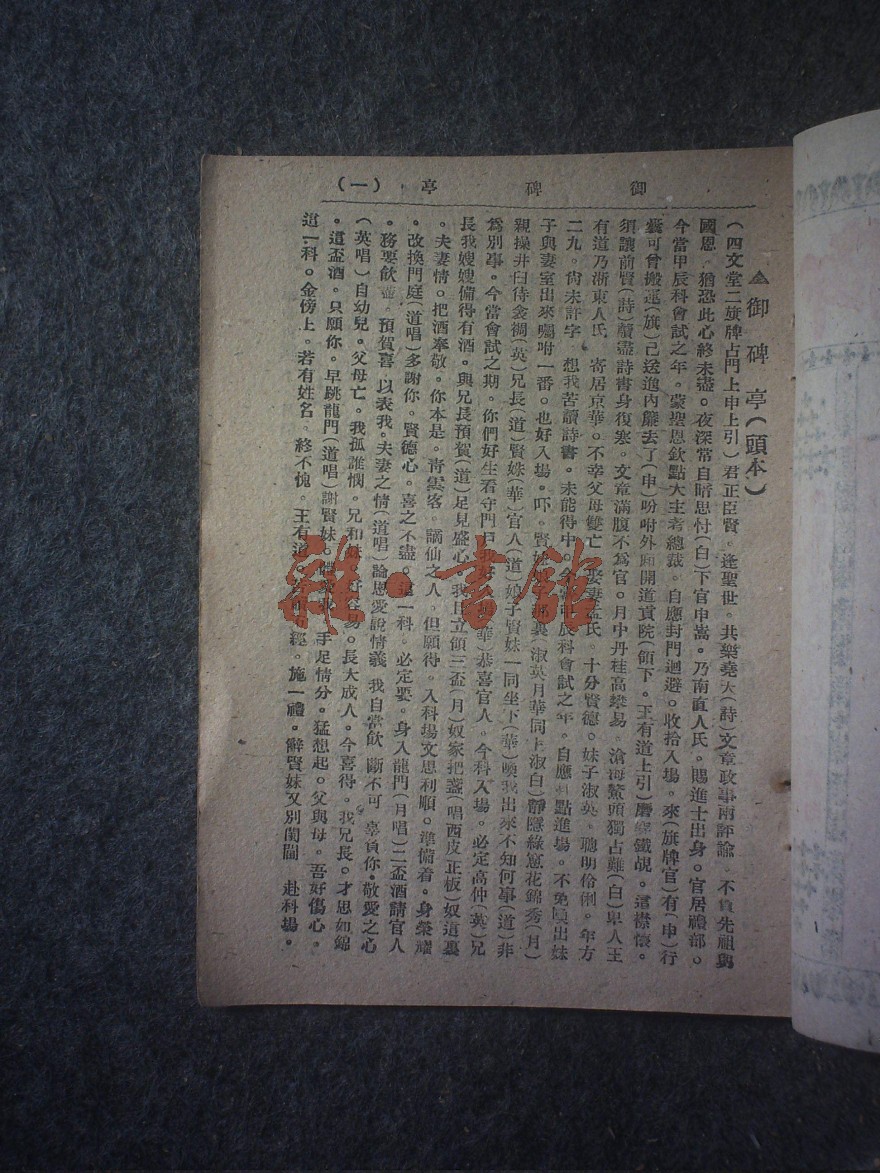 御碑亭（一）
▲御碑亭（頭本）
（四文堂二旗牌占門上申上引）君正臣賢。逢聖世。共樂堯天（詩）文章政事兩評論。不負先祖與
國恩。猶恐此心終未盡。夜深常自暗思忖（白）下官申嵩。乃南直人氏。賜進士出身。官居禮部。
今當甲辰科會試之年。蒙聖恩欽點大主考總裁。自應封門迴避。收拾入場。來（旗牌官）有（申）行
囊可曾搬運（旗）已送進內簾去了（申）吩咐外廂開道貢院（領下。王有道上引）磨穿鐵硯。這襟懷。
須讓前賢（詩）讀盡詩書身復寒。文章滿腹不爲官。月中丹桂高攀易。滄海鰲頭獨占難（白）卑人王
有道乃浙東人氏 寄居京華。不幸父母雙亡 娶妻孟氏。十分賢德。妹子淑英。聰明伶俐。年方
二九。尙未許字 想我苦讀詩書。未能得中。今當甲辰科會試之年。自應 點進場。不免 出妹
子與妻室出來囑咐一番。也好入場。吓。賢妹 裏（淑英月華同上淑白）靜隱綠窻花錦秀（月）
親操井臼待衾裯（英）兄長（道）賢妹（華）官人（道）娘子賢妹一同坐下（華）喚我出來不知何事（道）非
爲別事。今當會試之期。你們好生看守門戶 （華）恭喜官人。今科入場。必定高仲（英）兄
長我嫂嫂備得有酒。與兄長預賀（道）足見盛心。我且立領三盃（月）奴家把盞（唱西皮正板）奴這裏
。夫妻情。把酒奉敬。你本是。靑雲客。謫仙之人 但願得。入科場文思利順。準備着。身榮耀
。改換門庭（道唱）多謝你。賢德心。喜之不盡。這一科。必定要。身入龍門（月唱）二盃酒請官人
。務要飲 。預賀喜 以表我。夫妻之情（道唱）論恩愛說情義 我自當飲 斷不可 辜負你。敬愛之心
（英唱）自幼兒。父母亡。我孤誰憫。兄和妹 。長大成人。今喜得。我兄長。才思如錦
。這盃酒。只願你。早跳龍門（道唱）謝賢妹。 手足情分。猛想起。父與母。吾好傷心。
這一科。金傍上。若有姓名。終不愧。王有道 。施一禮。辭賢妹又別閨閫 赴科場。
雜·書館